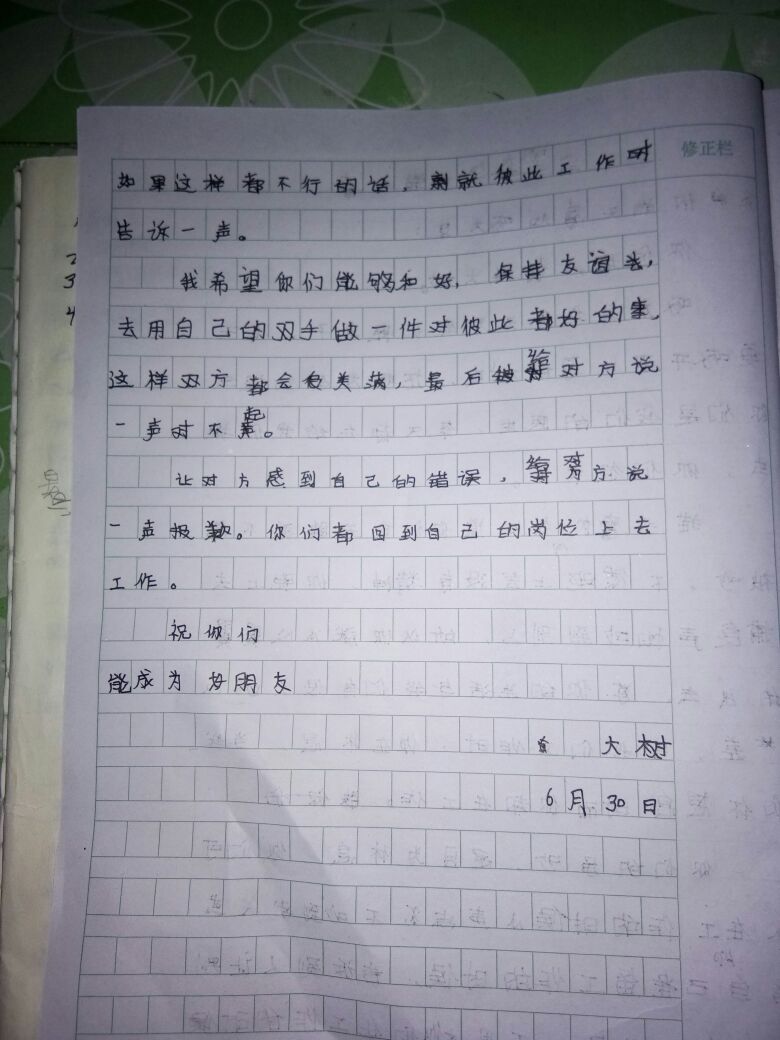 修正栏
如果这样都不行的话，就彼此工作时
告诉一声。
我希望你们能够和好，保持友谊，
去用自己的双手做一件对彼此都好的事，
这样双方都会美满，最后给对方说
一声对不起。
让对方感到自己的错误，给对方说
一声报歉。你们都回到自己的岗位上去
工作。
祝你们
能成为好朋友
大树
6月30日